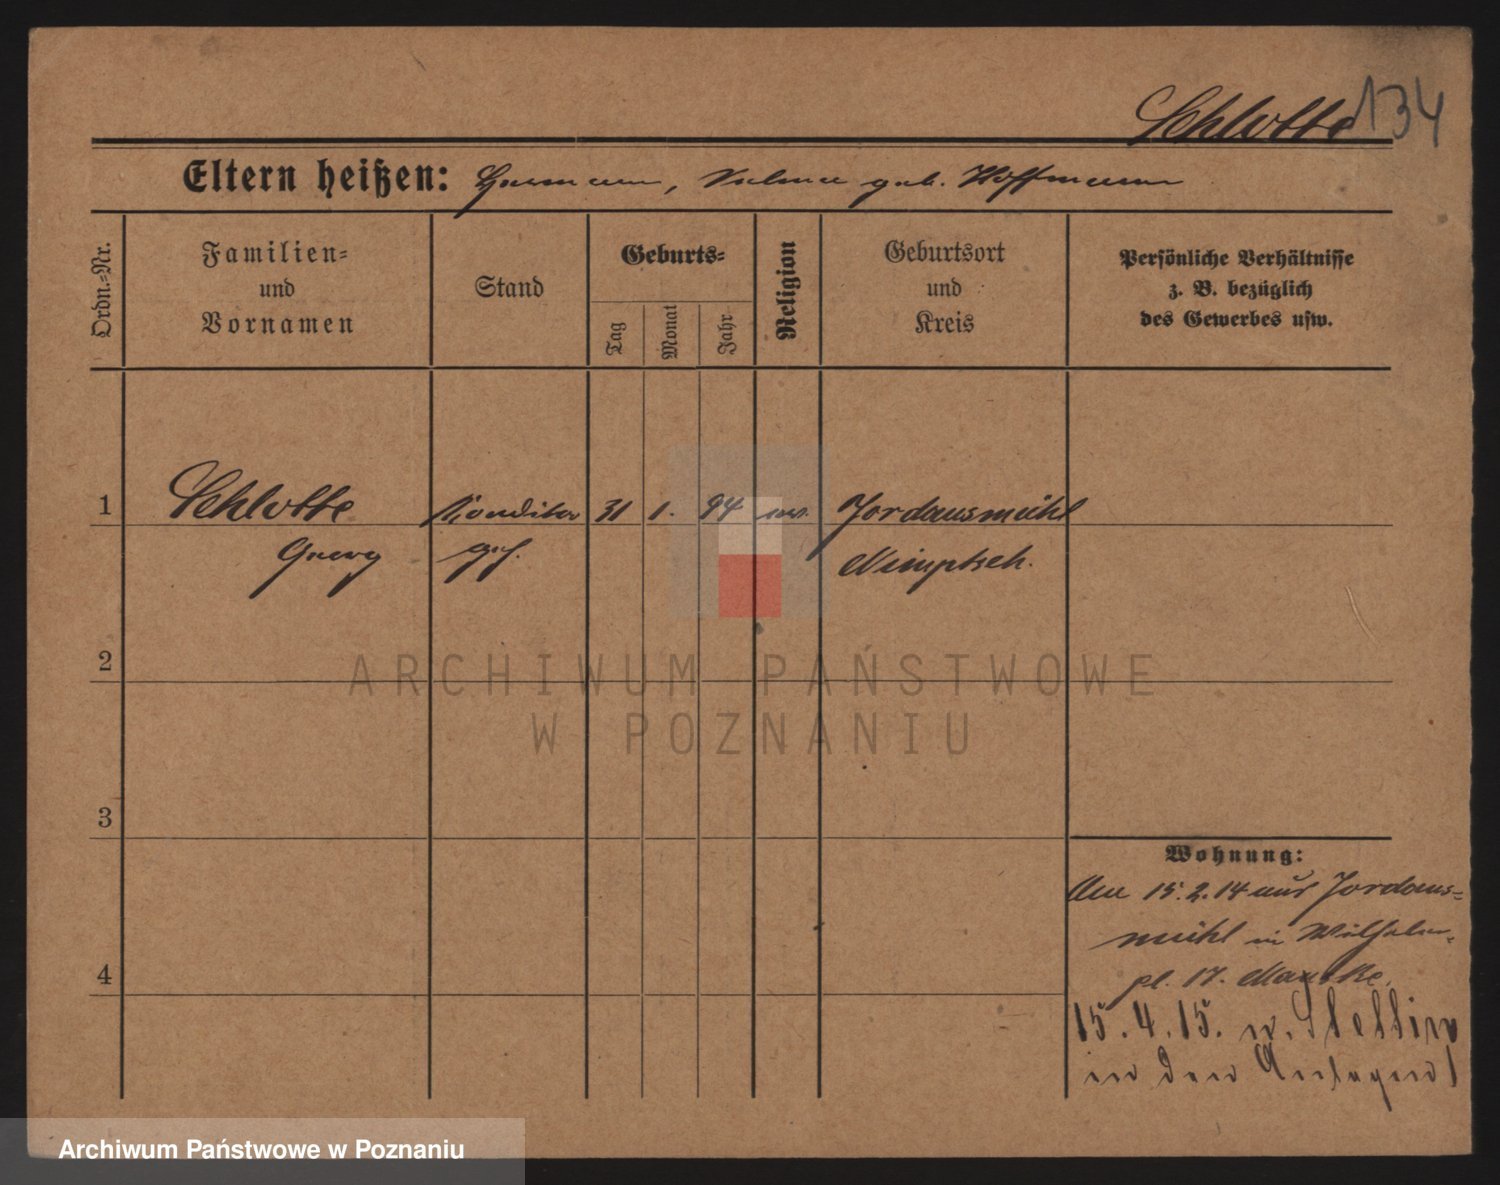 Schlotte 134
Eltern heißen: Hermann, Selma geb. Hoffmann
Ordn.-Nr.
Familien-
und
Vornamen
Stand
Geburts-
Tag
Monat
Jahr
Religion
Geburtsort
und
Kreis
Persönliche Verhältnisse
z. B. bezüglich
des Gewerbes usw.
1 Schlotte Konditor 31 1. 94 ev. Jordansmühl
Georg geh. Nimptsch.
2
3
4
Wohnung:
Am 15.2.14 aus Jordans=
mühl in Wilhelm-
pl. 17. Mantke.
15.4.15. n. Stettin
in den Anlagen 1
ARCHIWUM PAŃSTWOWE
W POZNANIU
Archiwum Państwowe w Poznaniu